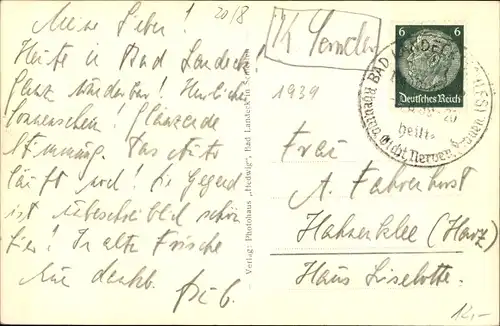 Meine Lieben! 20/8
Heute in Bad Landeck
Ganz wunderbar! Herrlicher
Sonnenschein! Glänzende
Stimmung. Das Auto
läuft noch! Die Gegend
ist unbeschreiblich schön
hier! In alter Frische
Eure dankb.
Verlag: Photohaus „Hedwig“, Bad Landeck in Schlesien
1939
6
Deutsches Reich
BAD LANDECK SCHLESIEN
heilt
Rheuma, Gicht, Nerven, Frauen
Frau
A. Fahrenhorst
Hahnenklee (Harz)
Haus Liselotte.
12,-